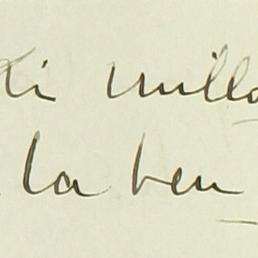 di mille
la ben